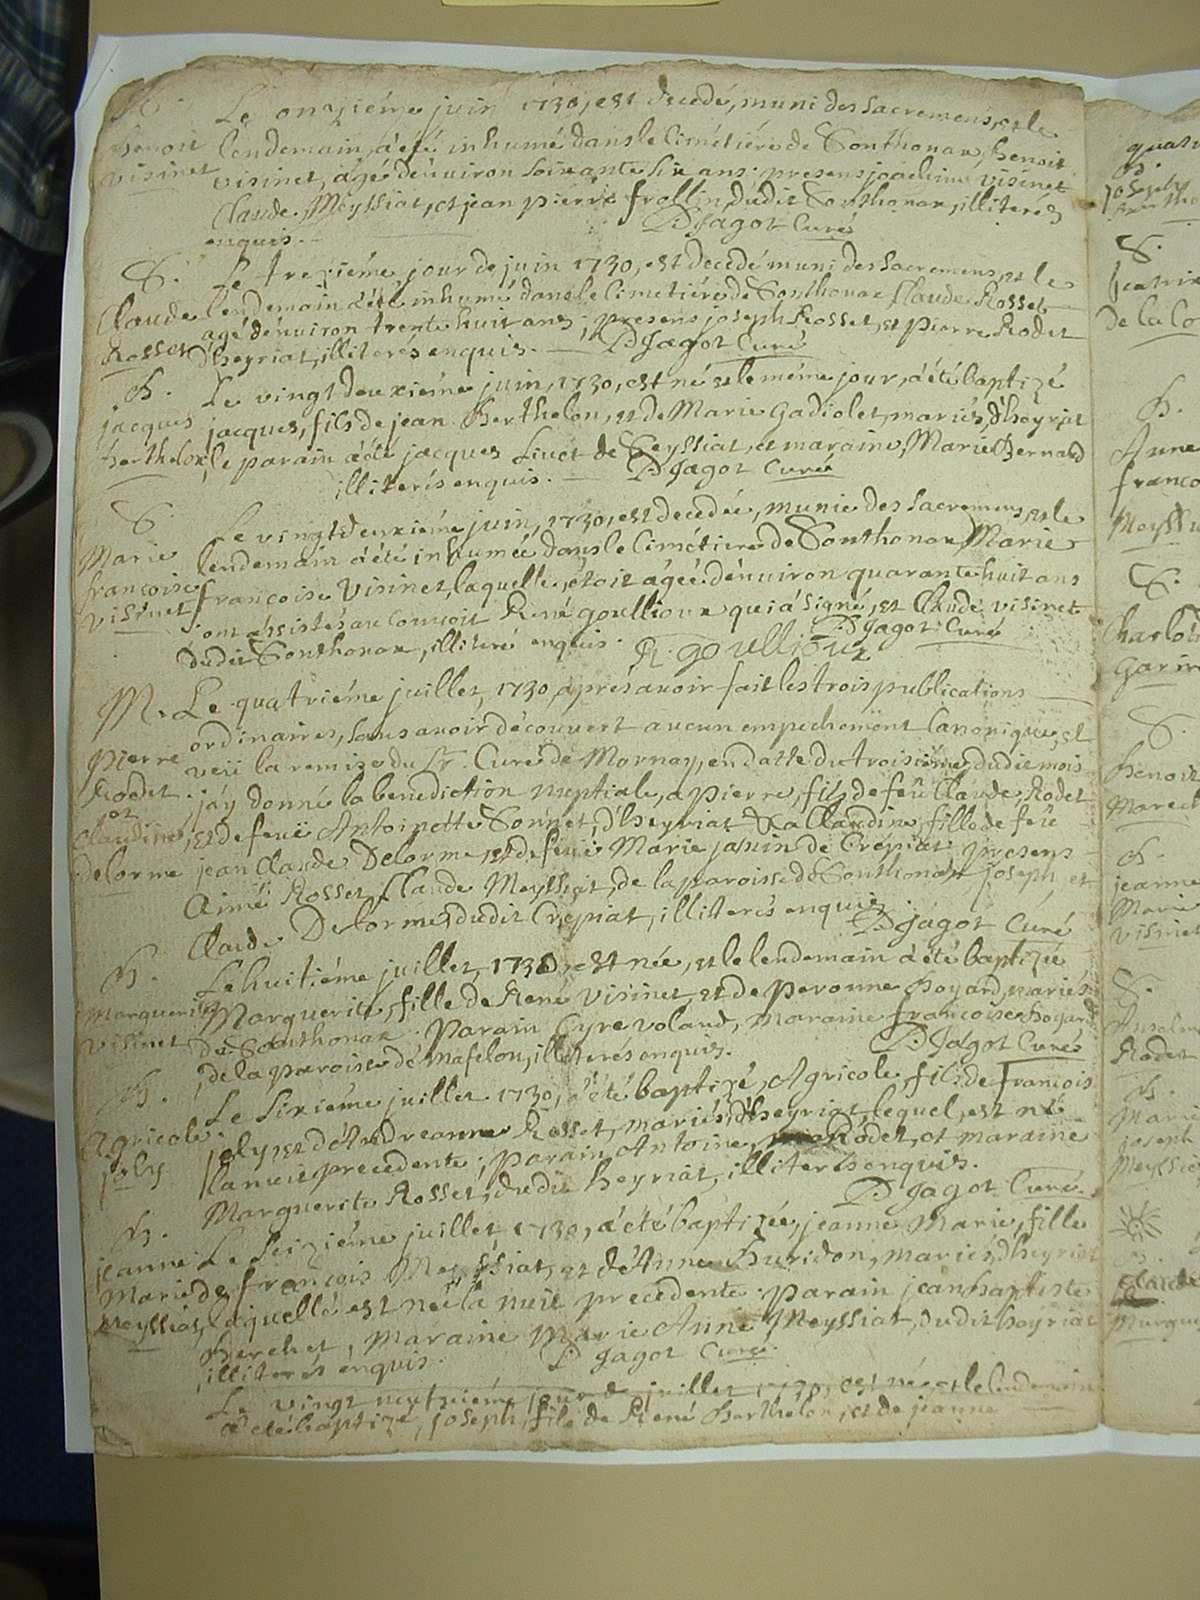 S.
Benoit
visinet
Le onziéme juin 1730, est decedé, muni des sacremens, et le
lendemain, a été inhumé dans le cimétiére de Sonthonax, benoit
visinet, âgé d'énuiron soixante six ans: presens joachim visinet
Claude Meyssiat, et jean pierre frollin, dudit Sonthonax, illiterés
enquis. D Jagot Curé
S.
Claude
Rosset
Le treziéme jour de juin 1730, est decedé muni des sacremens, et le
lendemain a été inhumé dans le cimetiére de Sonthonax Claude Rosset
agé d'énuiron trente huit ans; presens joseph Rosset, et pierre Rodet
d'heyriat, illiterés enquis. D Jagot Curé
B.
jacques
berthelon
Le vingt deuxiéme juin, 1730, est né et le méme jour, a été baptizé
jacques, fils de jean Berthelon, et de Marie Gadiolet, mariés, d'heyriat
le parain a été jacques Livet de Ceyssiat, et maraine, Marie Bernard
illiterés enquis. D Jagot Curé
S.
Marie
françoise
visinet
Le vingt deuxiéme juin, 1730, est decedée, munie des sacremens, et le
lendemain a été inhumée dans le cimétiere de Sonthonax Marie
françoise visinet, laquelle, étoit âgée d'énuiron quarante huit ans
ont assistés au conuoit René goullioux qui a signé, et Claude visinet
dudit Sonthonax, illiteré enquis. D Jagot Curé
R. goullioux
M.
Pierre
Rodet
et
Claudine
delorme
Le quatriéme juillet, 1730, aprés auoir fait les trois publications
ordinaires, sans auoir découuert aucun empechement Canonique, et
veü la remise du Sr. Curé de Mornay, en datte du troisiéme, dudit mois
j'áy donné la benediction nuptiale, a pierre, fils de feû Claude, Rodet
et de feuë Antoinette Sonnet, d'heyriat & a Claudine, fille de feu
jean Claude Delorme, et de feuë Marie januin de Crépiat presens
Aimé Rosset, Claude Meyssiat, de la paroisse de Sonthonax joseph, et
Claude Delorme, dudit Crepiat, illiterés enquis. D. jagot Curé
B.
Marguerite
visinet
Le huitiéme juillet, 1730, est née, et le lendemain a été baptizé
Marguerite, fille de René visinet, et de peronne hoyard, mariés
de Sonthonax. Parain Cyre voland, maraine françoise hoyard
de la paroisse de mafelon, illiterés enquis. D. Jagot Curé
B.
Agricole
joly
Le sixiéme juillet 1730, a été baptizé, Agricole, fils de François
joly, et d'Andreanne Rosset, mariés, d'heyriat, lequel, est né
la nuit precedente; parain, Antoine, Rodet, et maraine
Marguerite Rosset, dudit heyriat, illiterés enquis.
D. Jagot Curé
B.
jeanne
Marie
Meyssiat
Le seiziéme juillet, 1730, a été baptizée, jeanne Marie, fille
de François Meyssiat, et d'Anne Buridon, mariés, d'heyriat
laquelle est née la nuit precedente. parain jean baptiste
berchet, maraine Marie Anne Meyssiat, dudit heyriat
illiterés enquis. D. Jagot Curé.
Le vingt neufuiéme jour de juillet 1730, est né, et le lendemain
a été baptizé, joseph, fils de René berthelon, et de jeanne
B.
joseph
S.
de la Co
B.
Anne
franco
Meyssi
S.
Charlot
Garin
S.
benoit
Marech
B.
jeanne
Marie
visinet
S.
Anselm
Rodet
B.
Marie
joseph
Meyssia
Claude
Margue